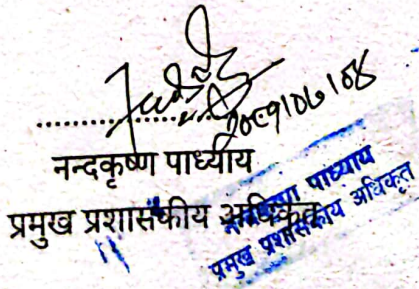 नन्दकृष्ण पाध्याय
प्रमुख प्रशासकीय अधिकृत
पाध्याय
प्रमुख प्रशासकीय अधिकृत